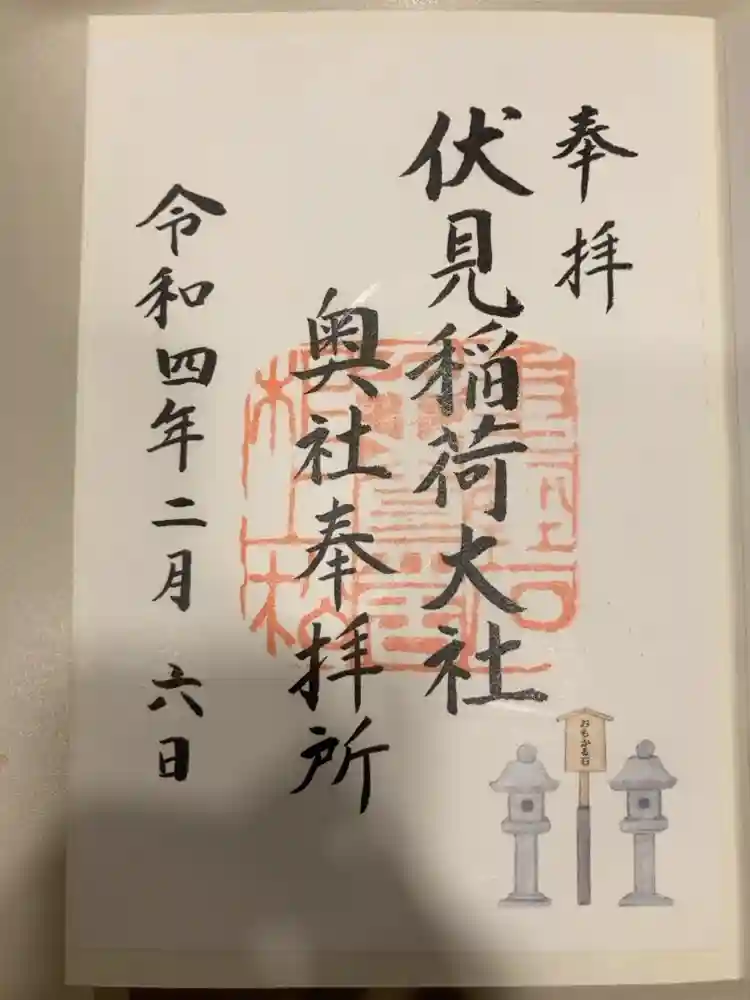 奉拝
伏見稲荷大社
奥社奉拝所
令和四年二月 六日
おもかる石